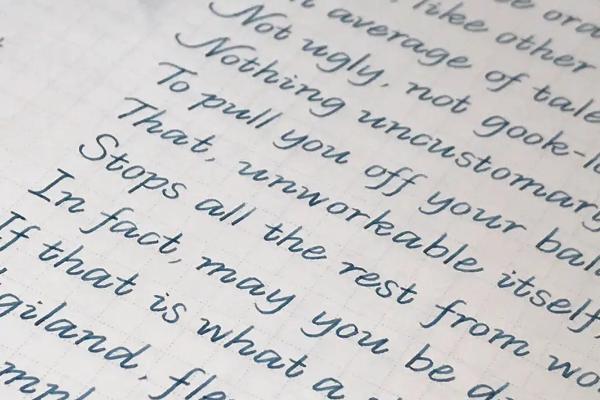 like other
average of tale
Not ugly, not gook-l
Nothing uncustomary
To pull you off your bal
That, unworkable itself,
Stops all the rest from wo
In fact, may you be d
If that is what a
giland, fle
mpl